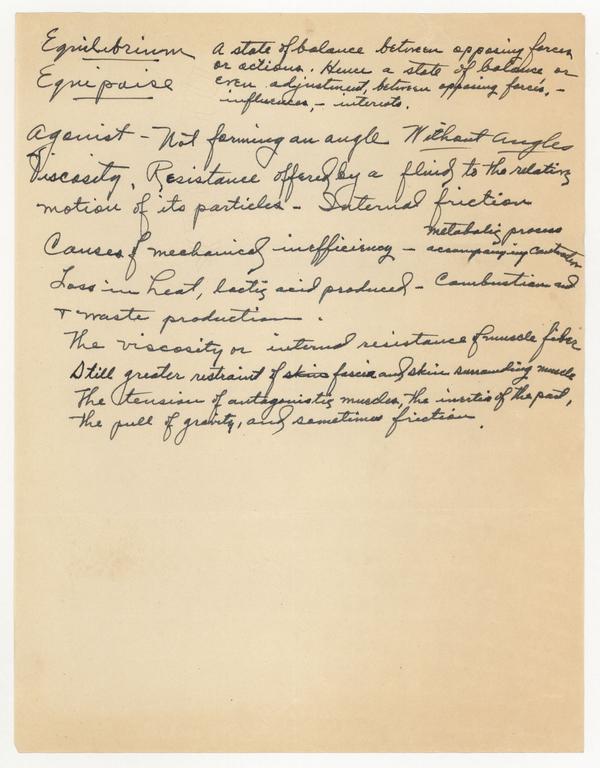 Equilibrium A state of balance between opposing forces
or actions. Hence a state of balance or
Equipoise even adjustment, between opposing forces, -
influences, - interests.
Agonist - Not forming an angle Without angles
Viscosity, Resistance offered by a fluid to the relative
motion of its particles - Internal friction
metabolic process
Causes of mechanical inefficiency - accompanying contraction
Loss in heat, lactic acid produced - Combustion and
+ waste production.
The viscosity or internal resistance of muscle fiber
Still greater restraint of skin fascia and skin surrounding muscle
The tension of antagonistic muscles, the inertia of the part,
the pull of gravity, and sometimes friction.